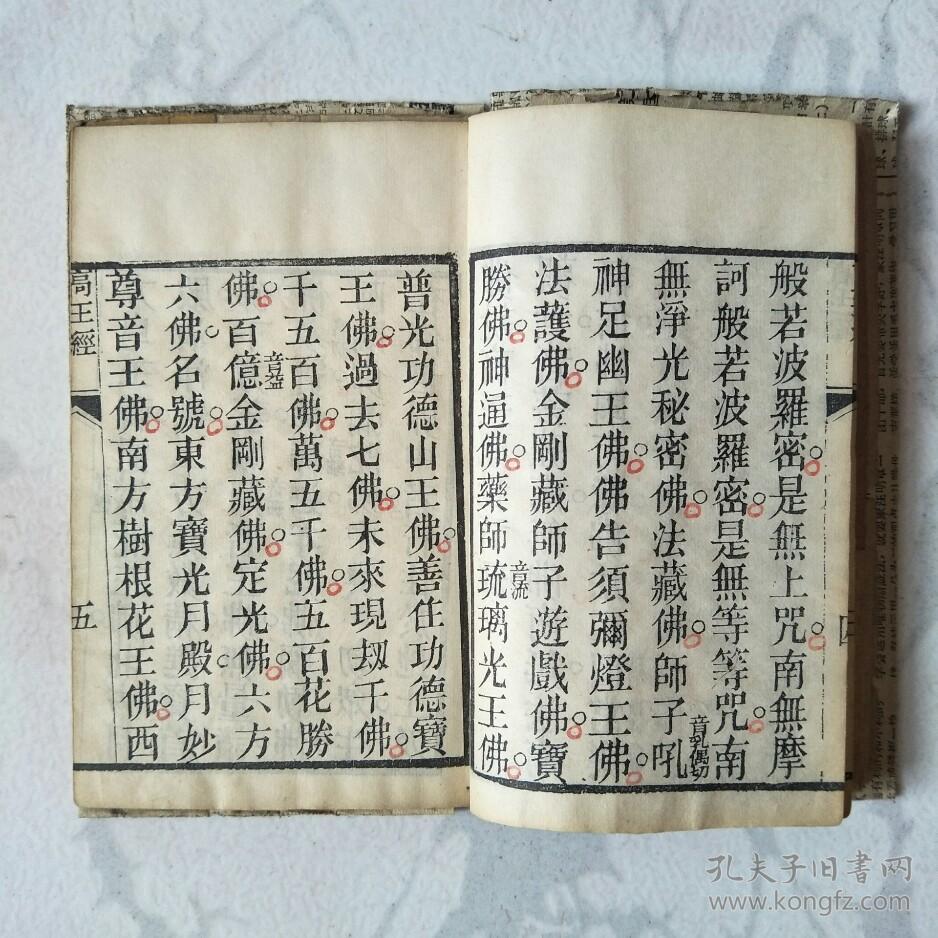 般若波羅密是無上咒南無摩
訶般若波羅密是無等等咒南
無淨光秘密佛法藏佛師子吼音乳偶切
神足幽王佛佛告須彌燈王佛
法護佛金剛藏師子遊戲佛寶
勝佛神通佛藥師琉音流璃光王佛
普光功德山王佛善住功德寶
王佛過去七佛未來現刼千佛
千五百佛萬五千佛五百花勝
佛百億音益金剛藏佛定光佛六方
六佛名號東方寶光月殿月妙
尊音王佛南方樹根花王佛西
高王經
五
孔夫子旧書网
www.kongfz.com